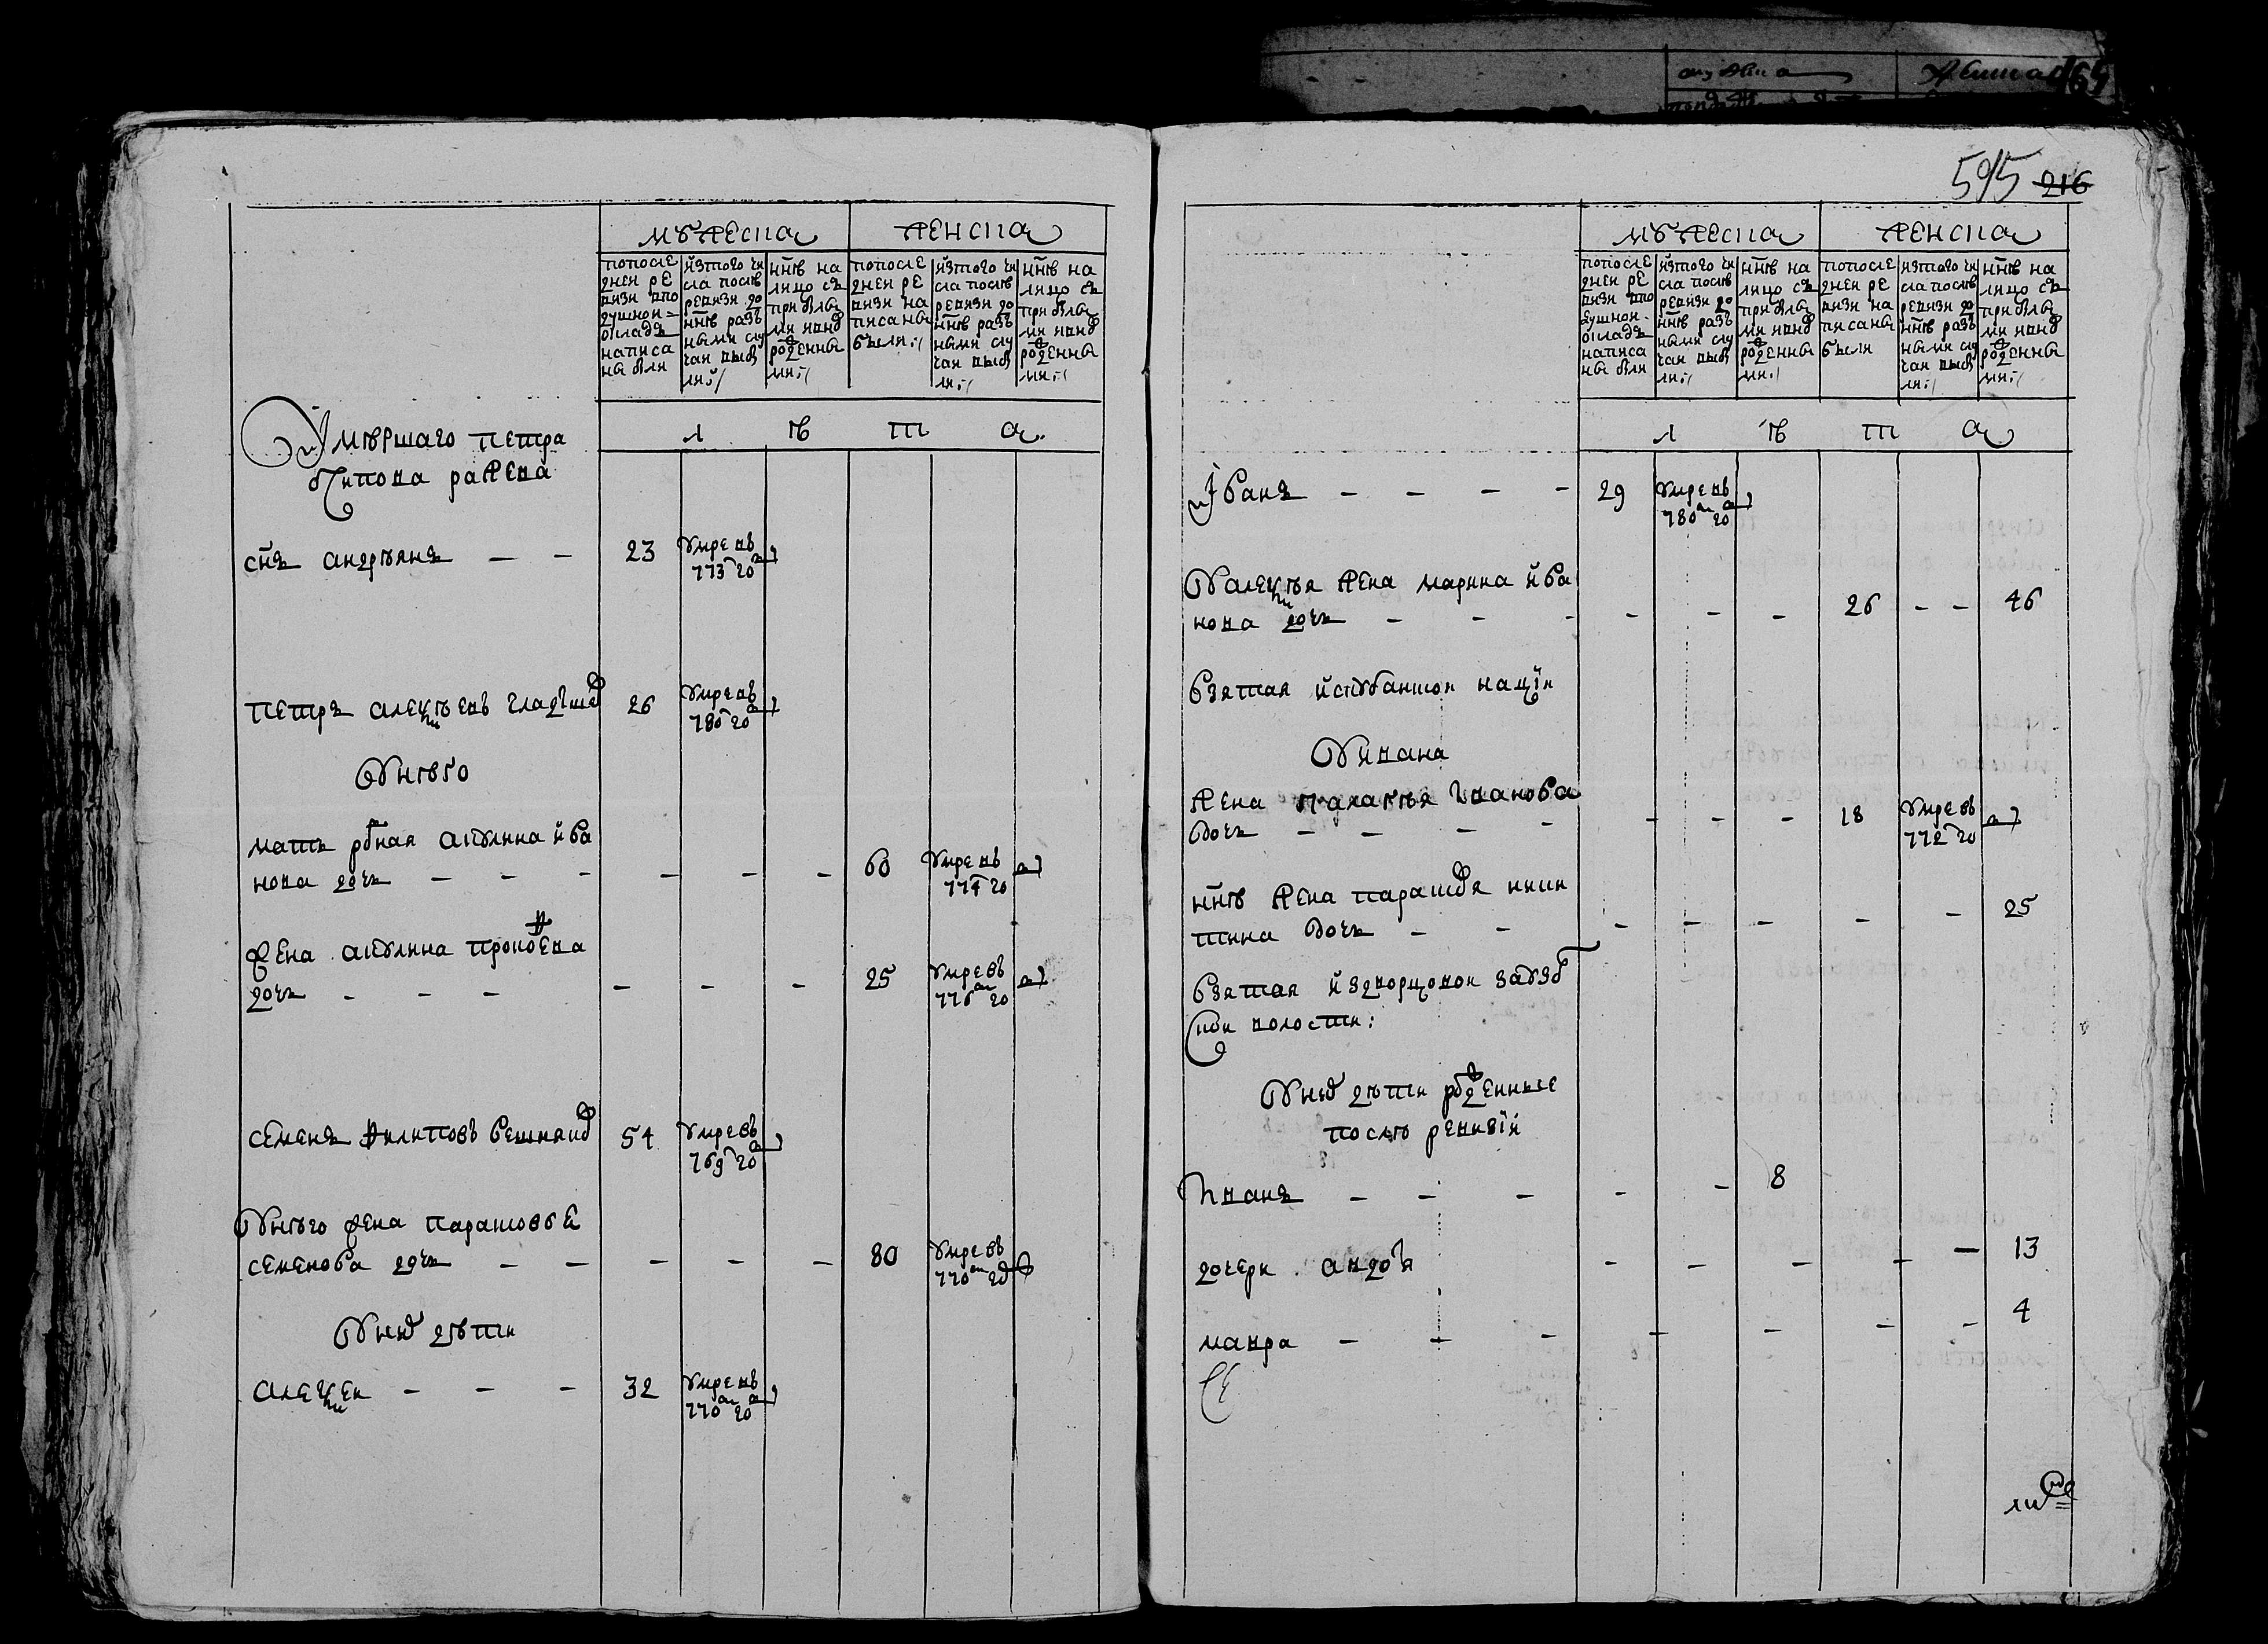 595 216
мужеска
женска
попосле
дней ре
визи впо
душной
окладъ
написа
ны были
изтого чи
сла послѣ
ревизи до
ннѣ разъ
ными слу
чаи выбы
ли
ннѣ на
лицо съ
прибылы
ми и вно
рожденны
ми
попосле
дней ре
визи на
писаны
были
изтого чи
сла послѣ
ревизи до
ннѣ разъ
ными слу
чаи выбы
ли
ннѣ на
лицо съ
прибылы
ми и вно
рожденны
ми
л ѣ т а
Умѣршаго петра
снъ андрѣянъ — — 23 умре въ
773 го
петръ алексѣевъ гладыше 26 умре въ
780 го
Унѣго
мать рдная акулина ива
нова дочь — — — — — — 60 умре въ
774 го
жена акулина прокофева
дочь — — — — — — 25 умре въ
776 го
семенъ филиповъ вешняко 54 умре въ
769 го
Унѣго жена парасковѣ
семенова дочь — — — — — 80 умре въ
770 го
Них дѣти
алексеи — — — 32 умре въ
770 го
мужеска
женска
попосле
дней ре
визи впо
душной
окладъ
написа
ны были
изтого чи
сла послѣ
ревизи до
ннѣ разъ
ными слу
чаи выбы
ли
ннѣ на
лицо съ
прибылы
ми и вно
рожденны
ми
попосле
дней ре
визи на
писаны
были
изтого чи
сла послѣ
ревизи до
ннѣ разъ
ными слу
чаи выбы
ли
ннѣ на
лицо съ
прибылы
ми и вно
рожденны
ми
л ѣ т а
Иванъ — — — — 29 умре въ
780 го
Уалексѣя жена марина ива
нова дочь — — — — — — 26 — — 46
взятая
Уивана
жена палагѣя иванова
дочь — — — — — — — 18 умре въ
772 го
ннѣ жена парасковя ники
тина дочь — — — — — — — 25
взятая
волости:
Уних дѣти рожденные
послѣ ревизии
Иванъ — — — — — 8
дочери авдотя — — — — — 13
мавра — — — — — — — 4